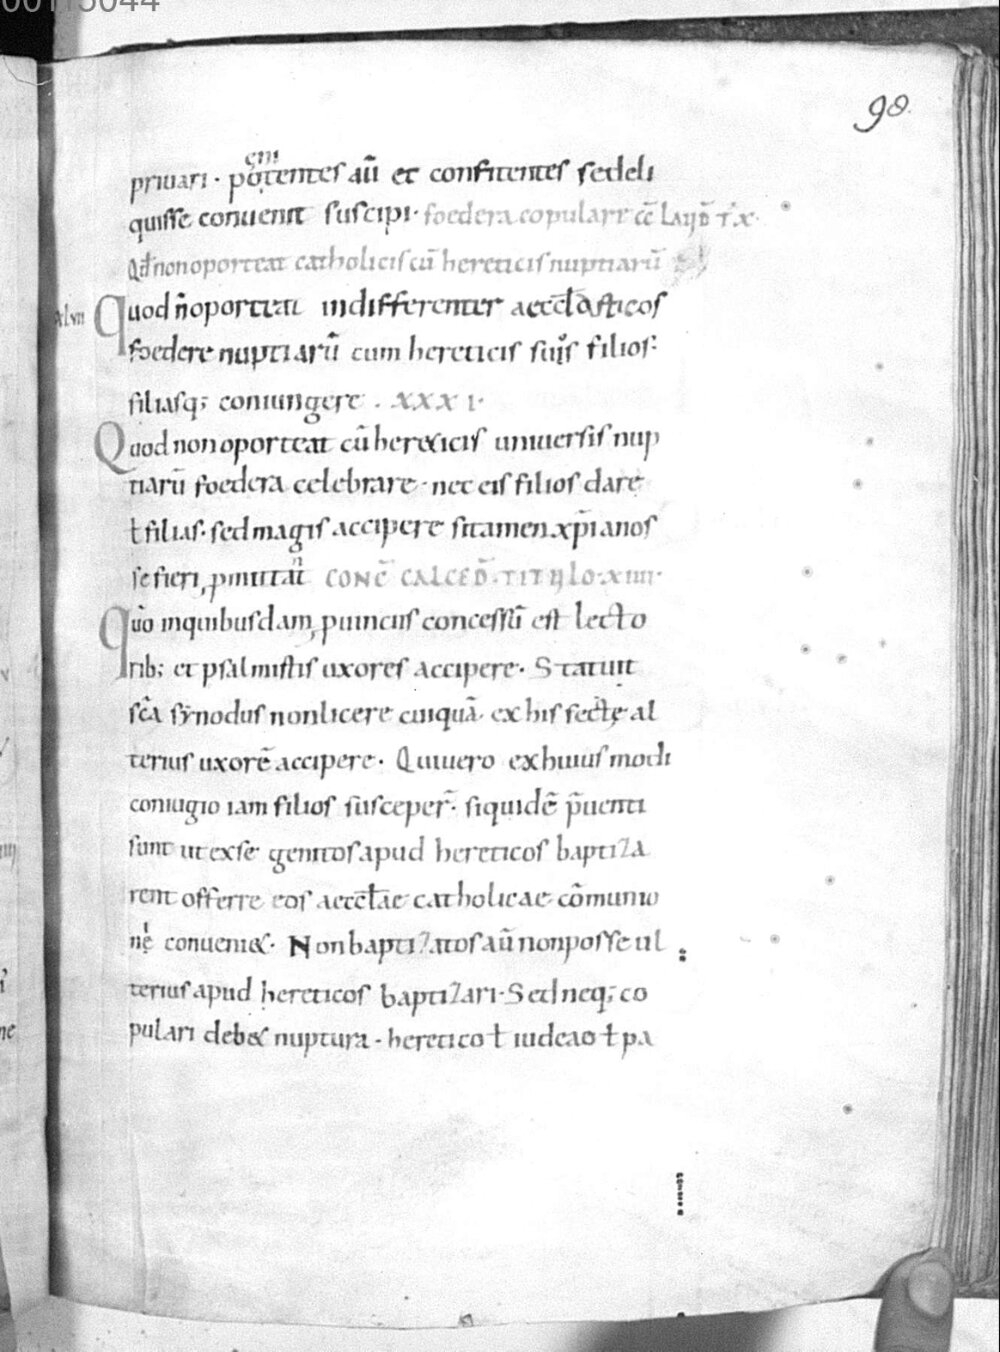 98
priuari · potentes aū et confitentes se deli
ęni
quisse conuenit suscipi · foedera copulare cc̄ Laud̄ t̄ x ·
Qd̄ non oporteat catholicis cū hereticis nuptiarū
xlvii Quod n̄ oporteat indifferenter aeccl̄asticos
foedere nuptiarū cum hereticis suos filios
filiasq; coniungere . xxxi ·
Quod non oporteat cū hereticis uniuersis nup
tiarū foedera celebrare · nec eis filios dare
ł filias · sed magis accipere si tamen xp̄ianos
se fieri promittant CONC̄ CALCED̄ · TITULO · XIIII ·
Quō in quibusdam prouinciis concessū est lecto
rib; et psalmistis uxores accipere · Statuit
sc̄a sẏnodus non licere cuiquā ex his sectę al
terius uxorē accipere · Qui uero ex huius modi
coniugio iam filios susceper̄ · siquidē p̄uenti
sunt ut ex se genitos apud hereticos baptiza
rent offerre eos aeccl̄ae catholicae cōmunio
nē conueni& · Non baptizatos aū non posse ul
terius apud hereticos baptizari · Sed neq; co
pulari deb& nuptura · heretico ł iudeao ł pa